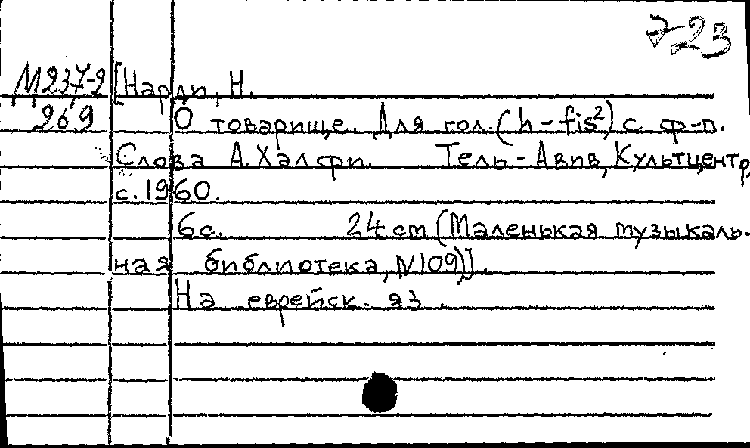 723
М237-2 [Нарди, Н.
969 О товарище. Для гол. (h-fis²) с ф-п.
Слова А. Халфи. Тель-Авив, Культцентр,
с. 1960.
6 с. 24 cm (Маленькая музыкаль-
ная библиотека, N109)].
На еврейск. яз.